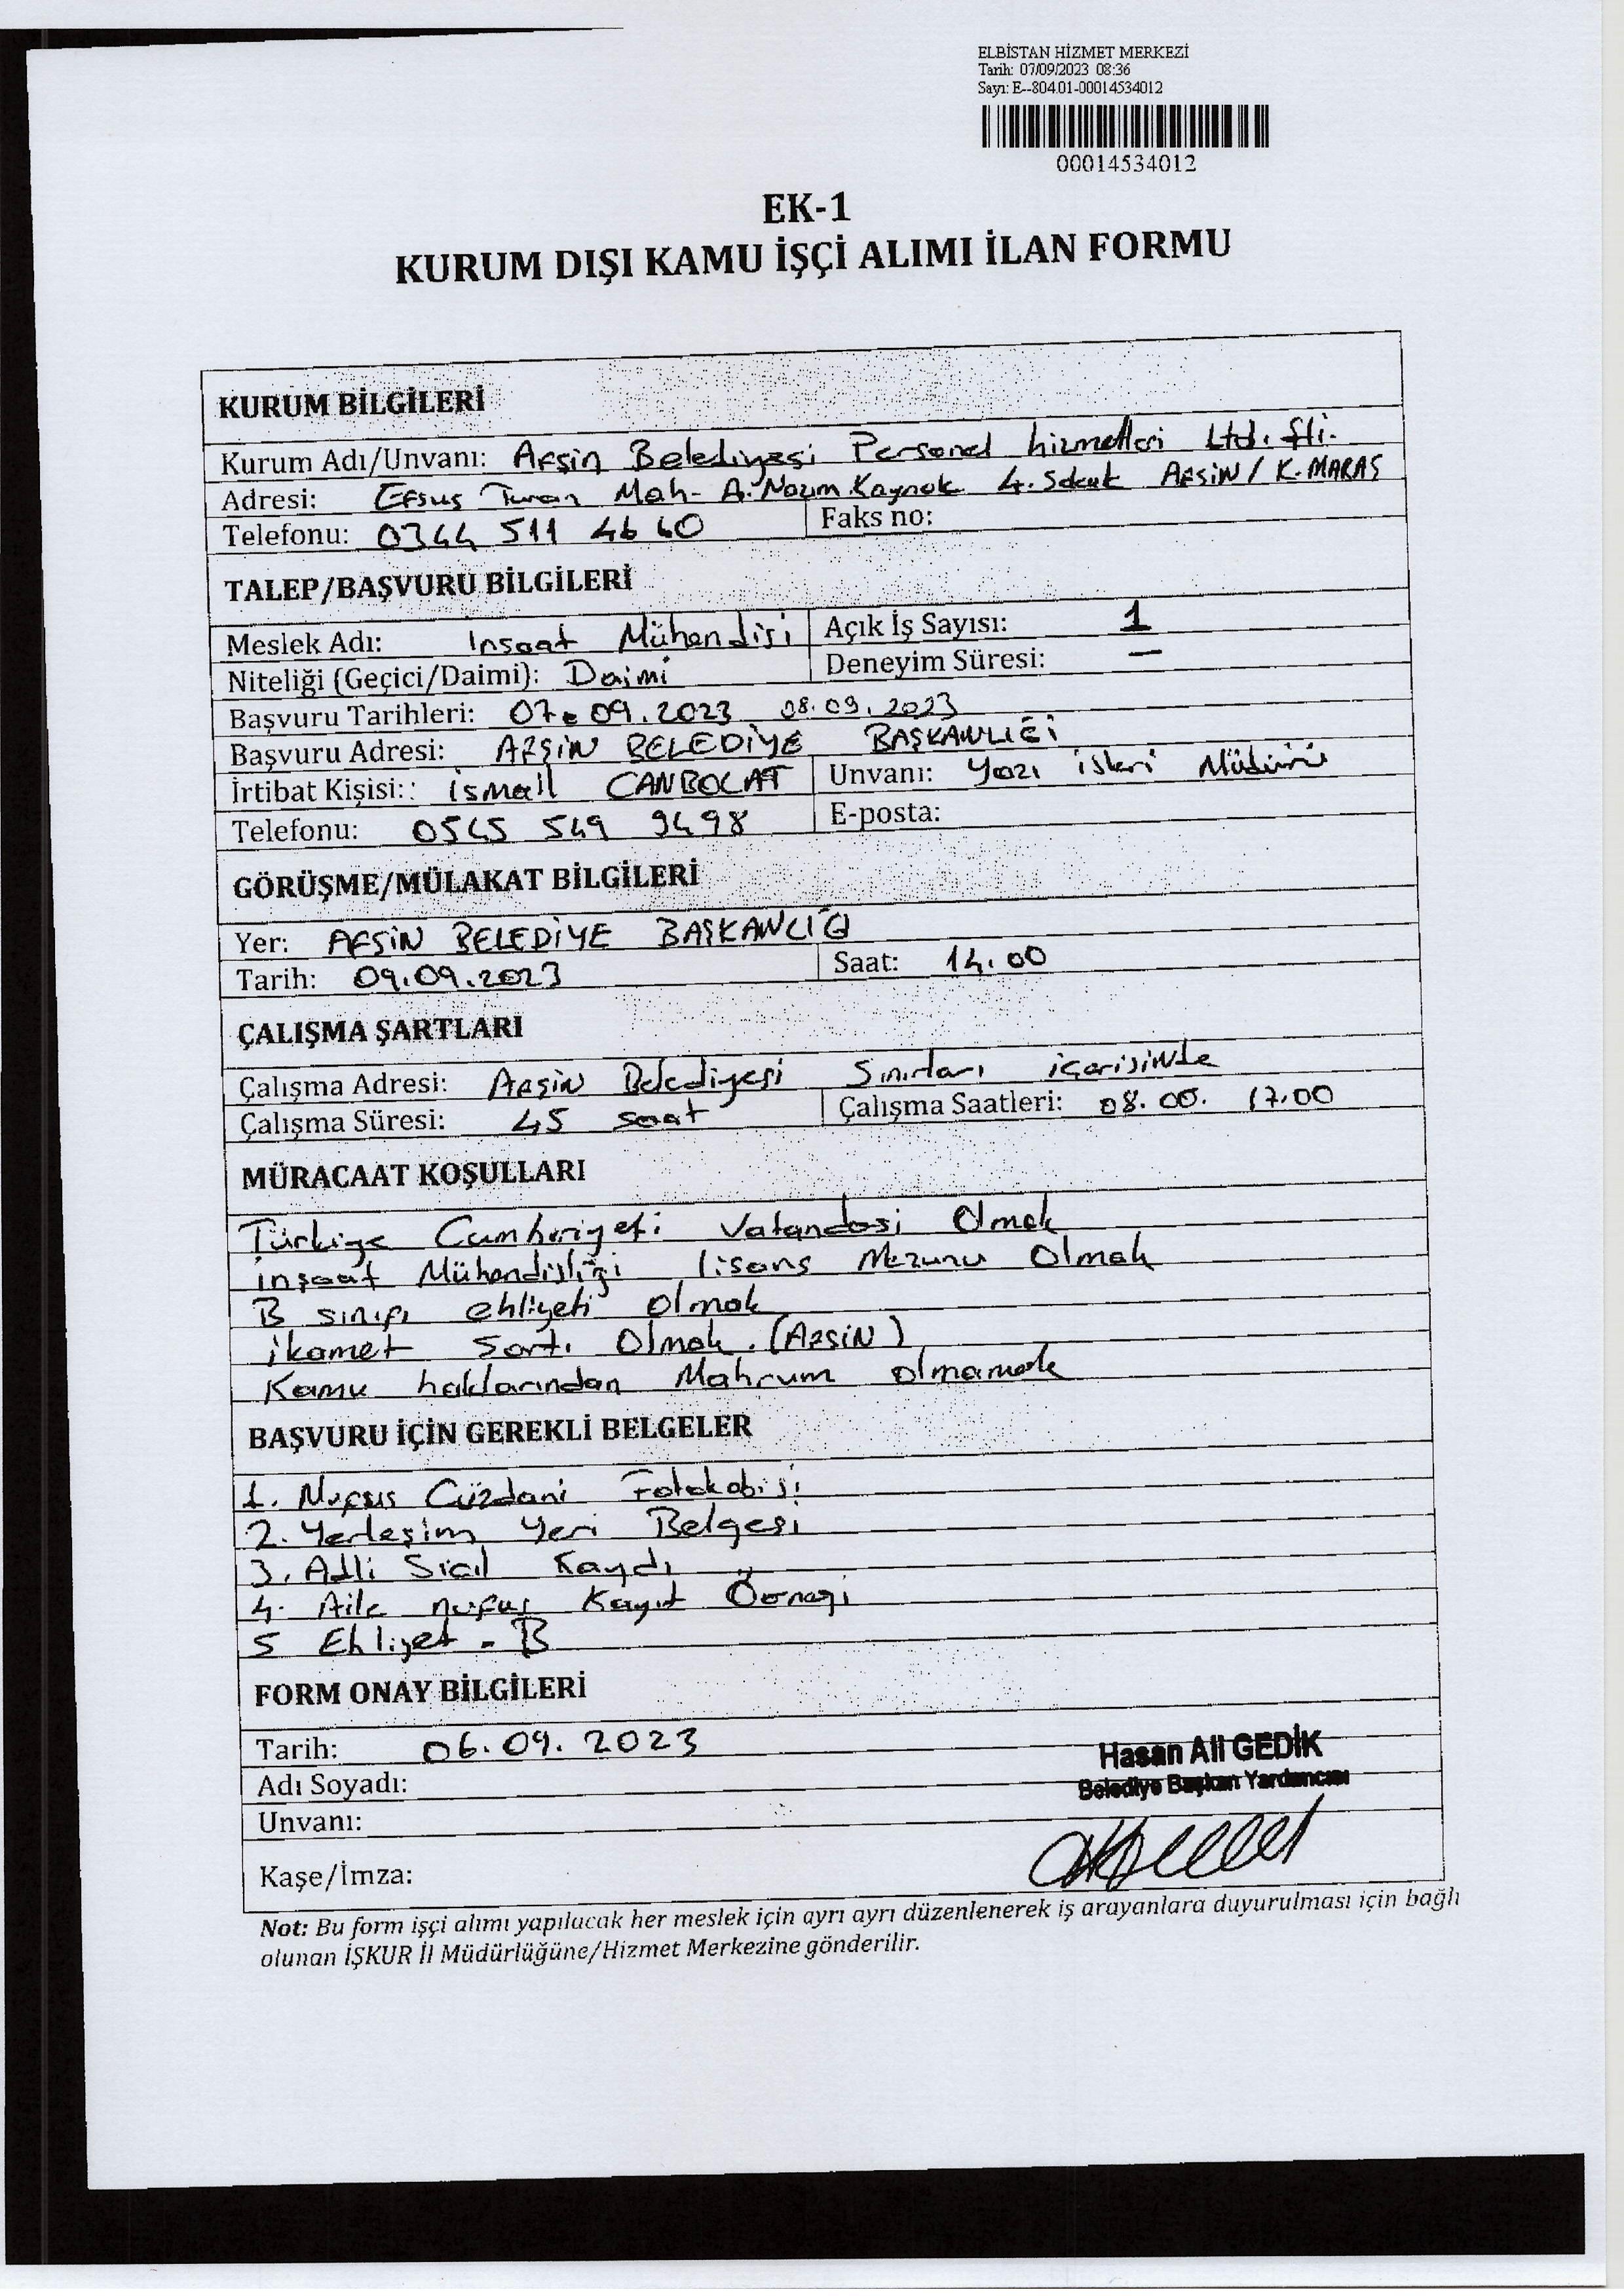 ELBİSTAN HİZMET MERKEZİ
Tarih: 07/09/2023 08:36
Sayı: E--804.01-00014534012
00014534012
EK-1
KURUM DIŞI KAMU İŞÇİ ALIMI İLAN FORMU
KURUM BİLGİLERİ
Kurum Adı/Unvanı: Afşin Belediyesi Personel hizmetleri Ltd. Şti.
Adresi: Efsus Turan Mah. A. Nazım Kaynak 4. Sokak AFŞİN / K.MARAŞ
Telefonu: 0344 511 46 40 Faks no:
TALEP/BAŞVURU BİLGİLERİ
Meslek Adı: İnşaat Mühendisi Açık İş Sayısı: 1
Niteliği (Geçici/Daimi): Daimi Deneyim Süresi: —
Başvuru Tarihleri: 07.09.2023 08.09.2023
Başvuru Adresi: AFŞİN BELEDİYE BAŞKANLIĞI
İrtibat Kişisi:: İsmail CANBOLAT Unvanı: Yazı işleri Müdürü
Telefonu: 0545 549 9498 E-posta:
GÖRÜŞME/MÜLAKAT BİLGİLERİ
Yer: AFŞİN BELEDİYE BAŞKANLIĞI
Tarih: 09.09.2023 Saat: 14.00
ÇALIŞMA ŞARTLARI
Çalışma Adresi: AFŞİN Belediyesi Sınırları içerisinde
Çalışma Süresi: 45 saat Çalışma Saatleri: 08.00. 17.00
MÜRACAAT KOŞULLARI
Türkiye Cumhuriyeti Vatandaşı Olmak
inşaat Mühendisliği lisans Mezunu Olmak
B sınıfı ehliyeti olmak
ikamet Şartı Olmak. (AFŞİN)
Kamu haklarından Mahrum olmamak
BAŞVURU İÇİN GEREKLİ BELGELER
1. Nüfus Cüzdanı Fotokobisi
2. Yerleşim Yeri Belgesi
3. Adli Sicil Kaydı
4. Aile nüfus Kayıt Örneği
5 Ehliyet - B
FORM ONAY BİLGİLERİ
Tarih: 06.09.2023
Hasan Ali GEDİK
Adı Soyadı:
Belediye Başkan Yardımcısı
Unvanı:
Kaşe/İmza:
Not: Bu form işçi alımı yapılacak her meslek için ayrı ayrı düzenlenerek iş arayanlara duyurulması için bağlı
olunan İŞKUR İl Müdürlüğüne/Hizmet Merkezine gönderilir.